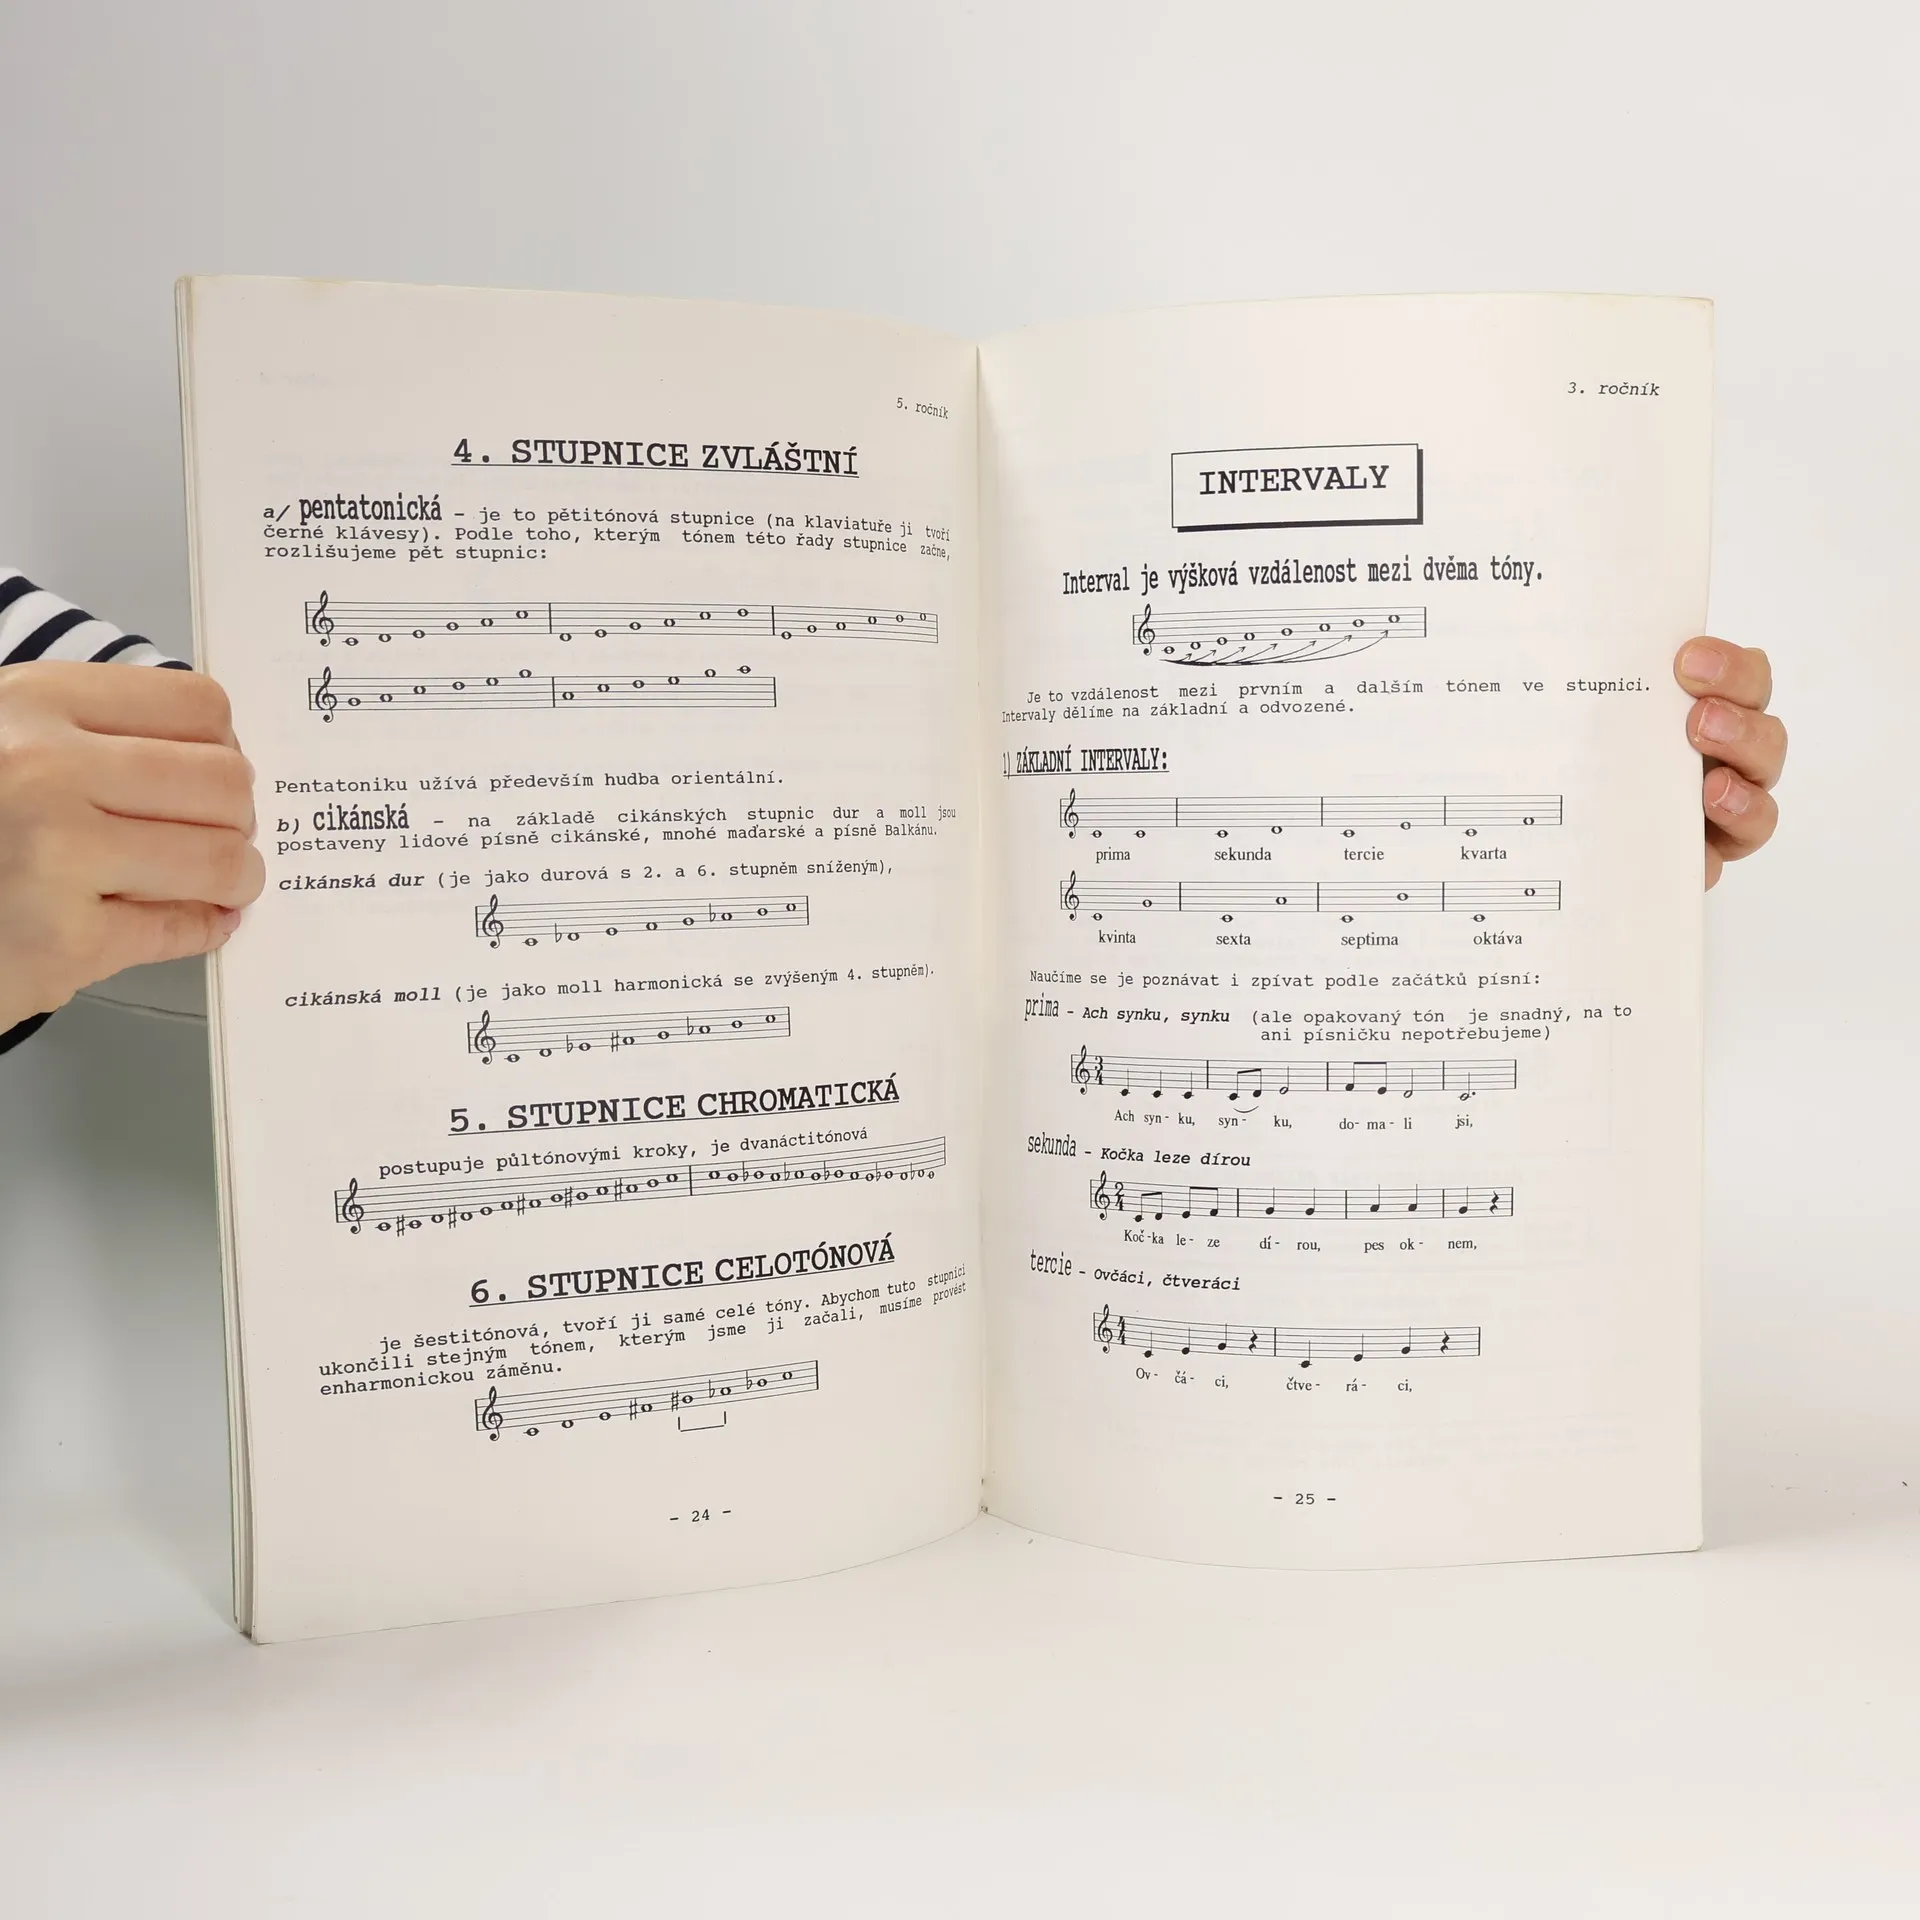 5. ročník
4. STUPNICE ZVLÁŠTNÍ
a/ pentatonická – je to pětitónová stupnice (na klaviatuře ji tvoří
černé klávesy). Podle toho, kterým tónem této řady stupnice začne,
rozlišujeme pět stupnic:
Pentatoniku užívá především hudba orientální.
b) cikánská – na základě cikánských stupnic dur a moll jsou
postaveny lidové písně cikánské, mnohé maďarské a písně Balkánu.
cikánská dur (je jako durová s 2. a 6. stupněm sníženým),
cikánská moll (je jako moll harmonická se zvýšeným 4. stupněm).
5. STUPNICE CHROMATICKÁ
postupuje půltónovými kroky, je dvanáctitónová
6. STUPNICE CELOTÓNOVÁ
je šestitónová, tvoří ji samé celé tóny. Abychom tuto stupnici
ukončili stejným tónem, kterým jsme ji začali, musíme provést
enharmonickou záměnu.
– 24 –
3. ročník
INTERVALY
Interval je výšková vzdálenost mezi dvěma tóny.
Je to vzdálenost mezi prvním a dalším tónem ve stupnici.
Intervaly dělíme na základní a odvozené.
1) ZÁKLADNÍ INTERVALY:
prima sekunda tercie kvarta
kvinta sexta septima oktáva
Naučíme se je poznávat i zpívat podle začátků písní:
prima – Ach synku, synku (ale opakovaný tón je snadný, na to
ani písničku nepotřebujeme)
3 4
Ach syn- ku, syn- ku, do- ma- li jsi,
sekunda – Kočka leze dírou
2 4
Koč-ka le- ze dí- rou, pes ok- nem,
tercie – Ovčáci, čtveráci
4 4
Ov- čá- ci, čtve- rá- ci,
– 25 –